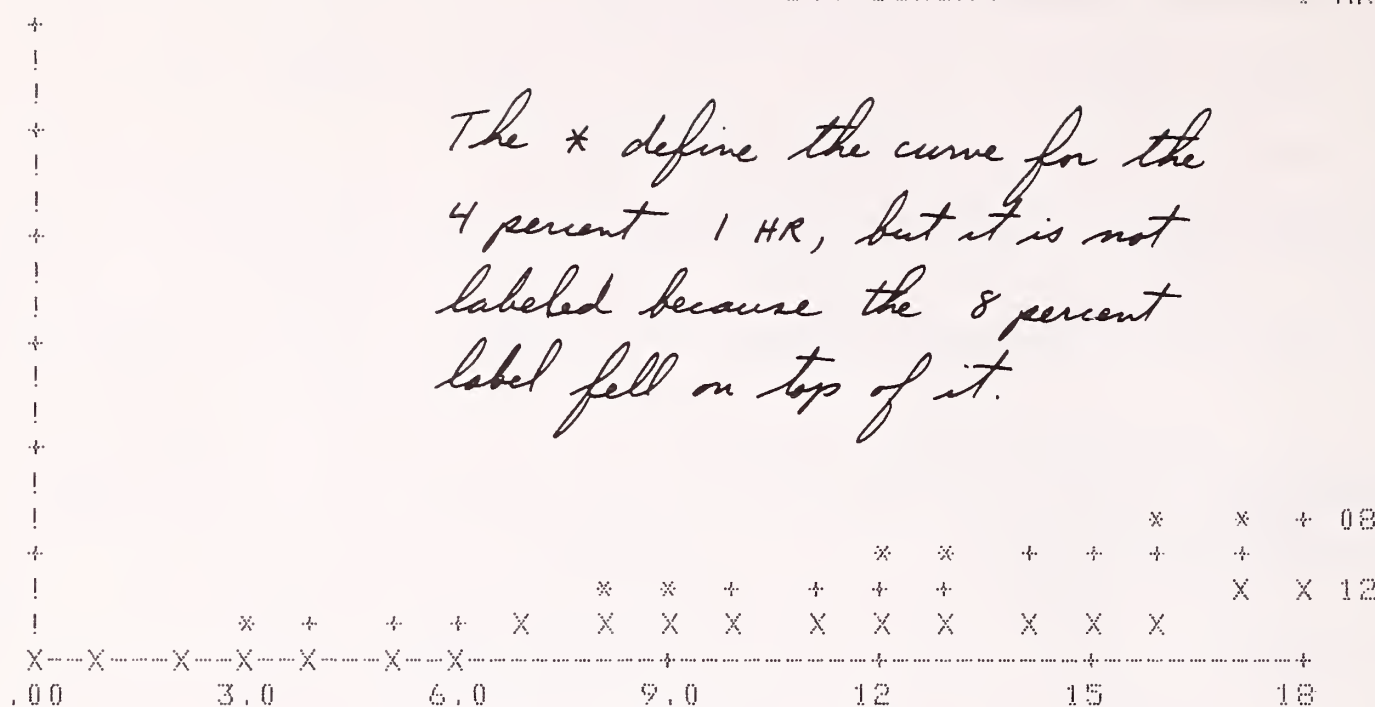 The * define the curve for the
4 percent 1 HR, but it is not
labeled because the 8 percent
label fell on top of it.
* * + 08
* * + + + +
* * + + + + X X 12
* + + + X X X X X X X X X X
X---X-----X---X---X-----X---X------------+------------+------------+------------+
.00 3.0 6.0 9.0 12 15 18